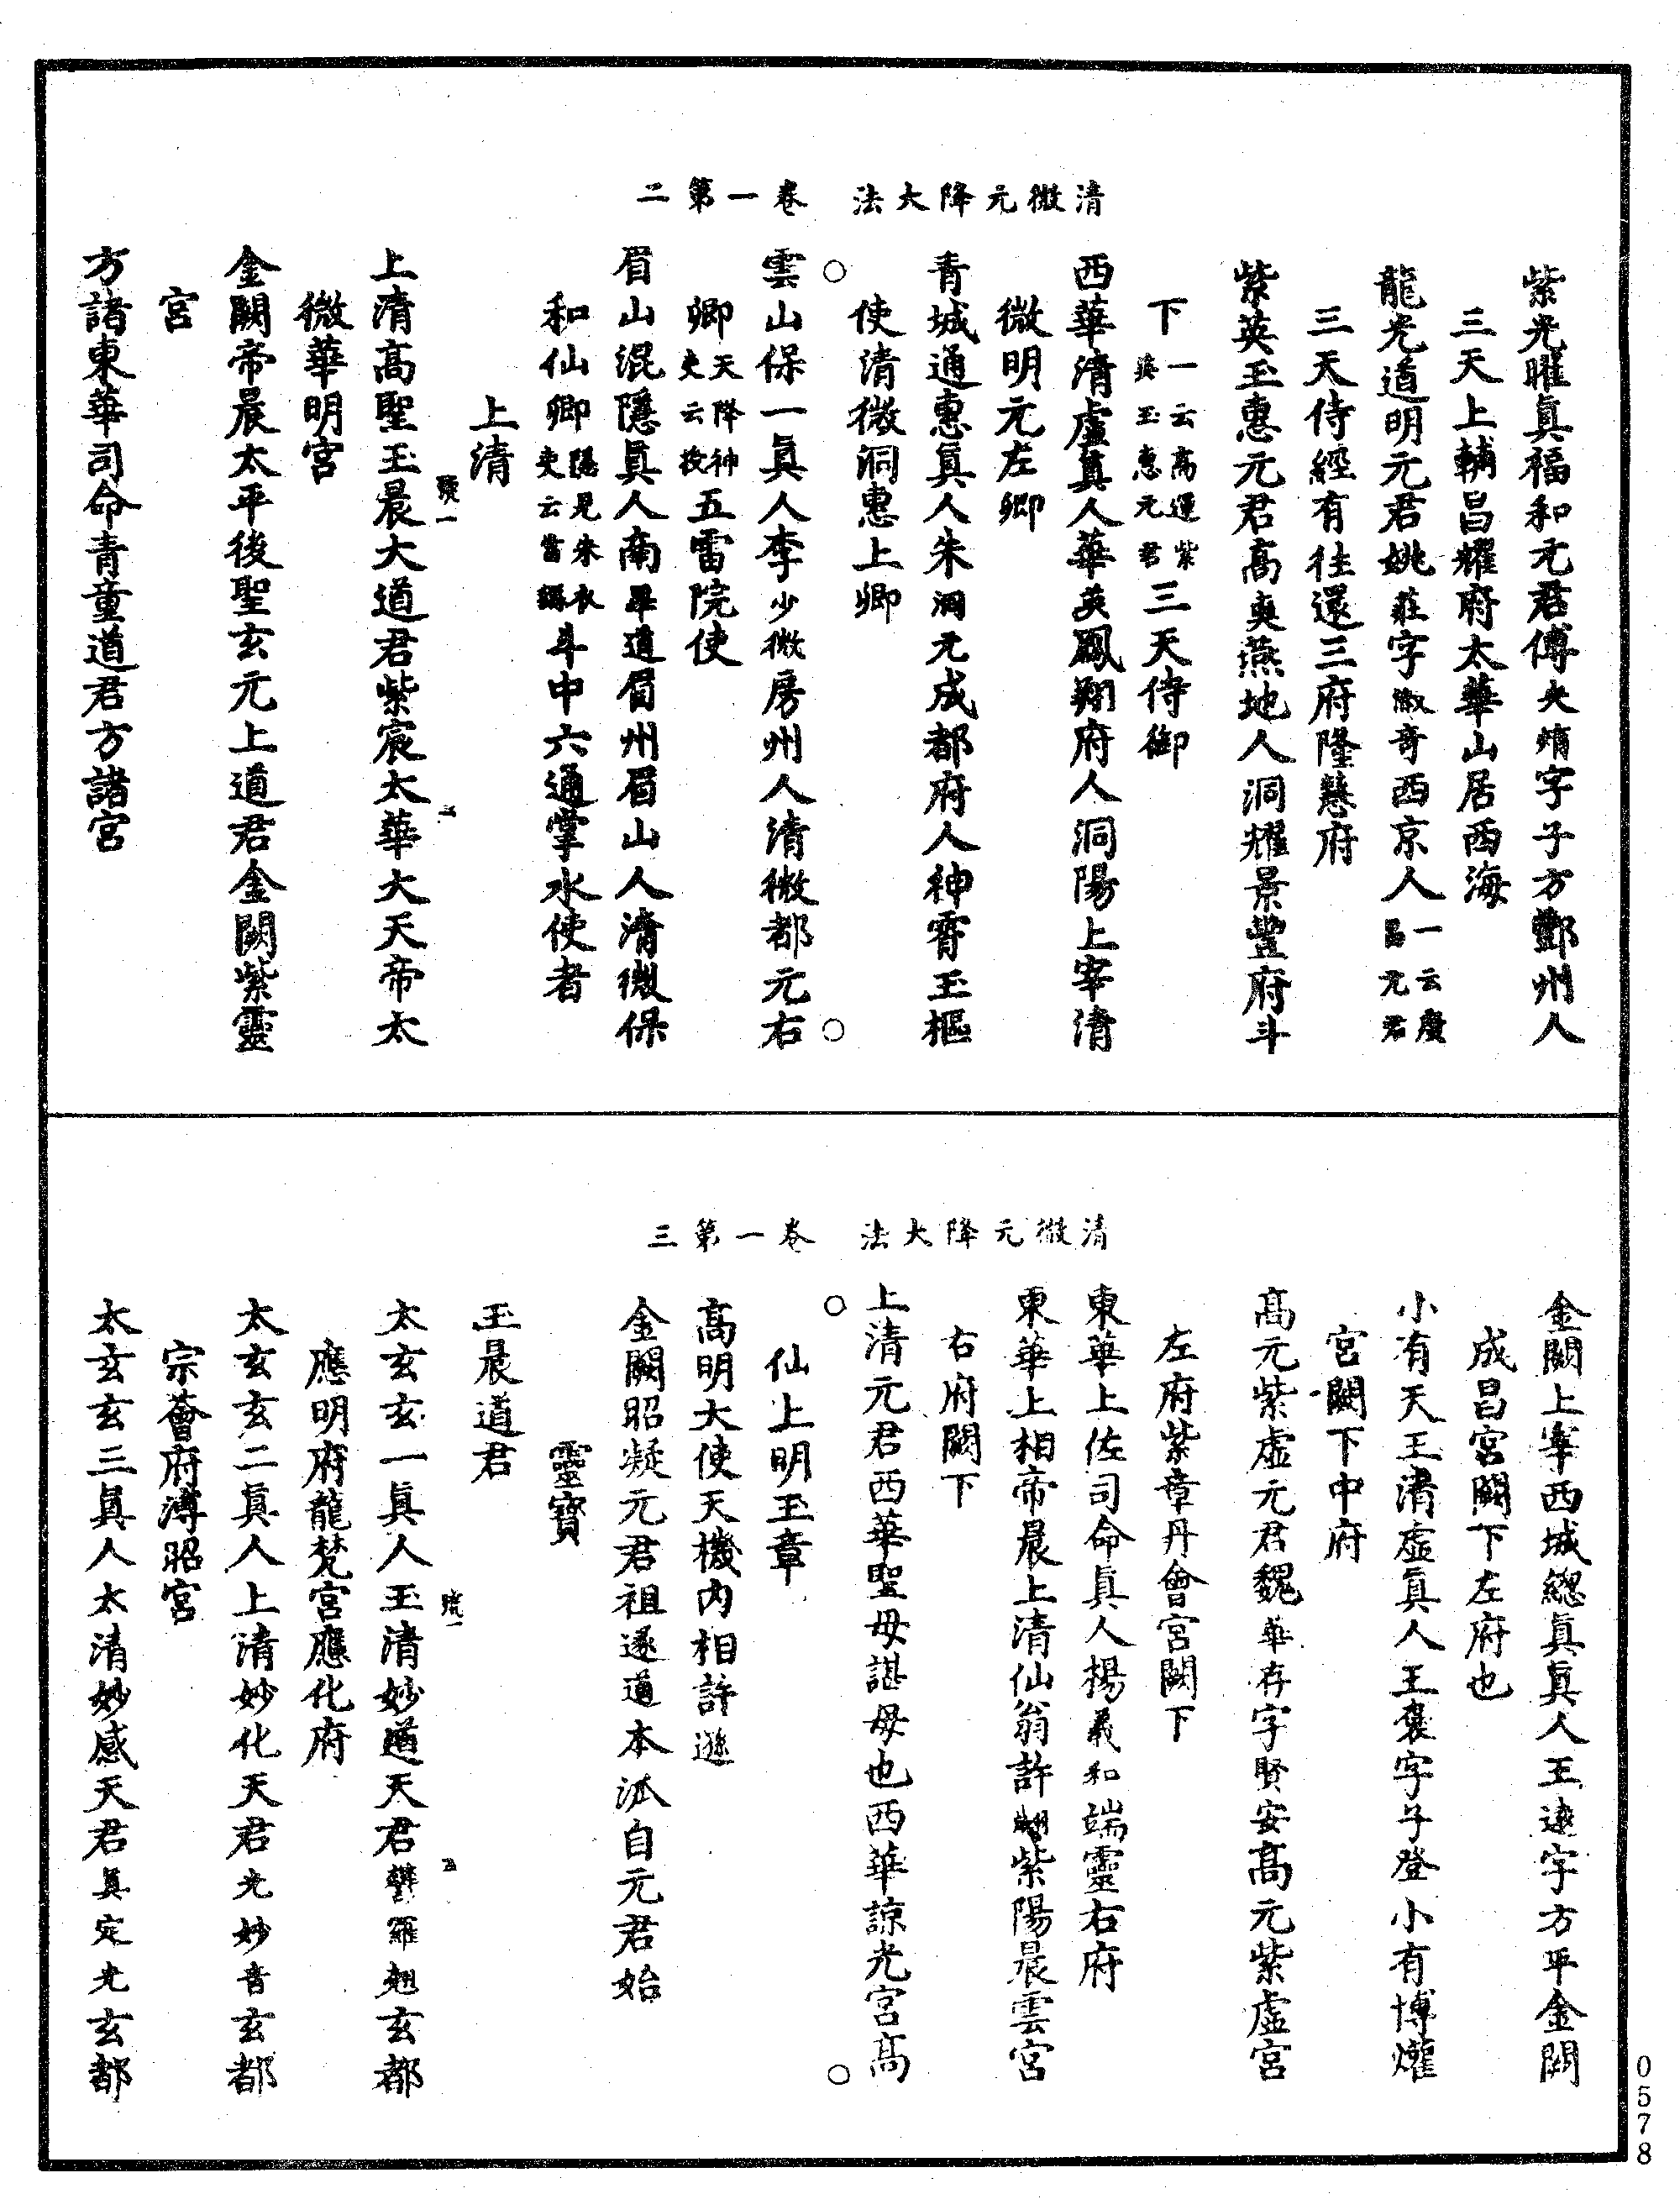 清微元降大法　卷一第二
紫光曜真福和元君傅央焴字子方酆州人
三天上輔昌耀府太華山居西海
龍光道明元君姚莊字淑奇西京人一云廣昌元君
三天侍經有往還三府隆慧府
紫英玉惠元君高奭燕地人洞耀景豐府斗
下一云高運紫英玉惠元君三天侍御
西華清虛真人華英鳳翔府人洞陽上宰清
微明元左卿
青城通惠真人朱洞元成都府人神霄玉樞
使清微洞惠上卿
雲山保一真人李少微房州人清微都元右
卿天降神吏云投五雷院使
眉山混隱真人南畢道眉州眉山人清微保
和仙卿隱見朱衣吏云當歸斗中六通掌水使者
上清
上清高聖玉晨大道君紫宸太華大天帝太
微華明宮
號一
金闕帝晨太平後聖玄元上道君金闕紫靈
宮
方諸東華司命青童道君方諸宮
清微元降大法　卷一第三
金闕上宰西城總真真人王遠字方平金闕
成昌宮闕下左府也
小有天王清虛真人王褒字子登小有博爟
宮闕下中府
高元紫虛元君魏華存字賢安高元紫虛宮
左府紫章丹會宮闕下
東華上佐司命真人楊羲和端靈右府
東華上相帝晨上清仙翁許翽紫陽晨雲宮
右府闕下
上清元君西華聖母諶母也西華諒光宮高
仙上明玉章
高明大使天機內相許遜
金闕昭凝元君祖遂道本派自元君始
靈寶
玉晨道君
太玄玄一真人玉清妙道天君鬱羅翹玄都
應明府龍梵宮應化府
號一
太玄玄二真人上清妙化天君光妙音玄都
宗薈府溥昭宮
太玄玄三真人太清妙感天君真定光玄都
0578